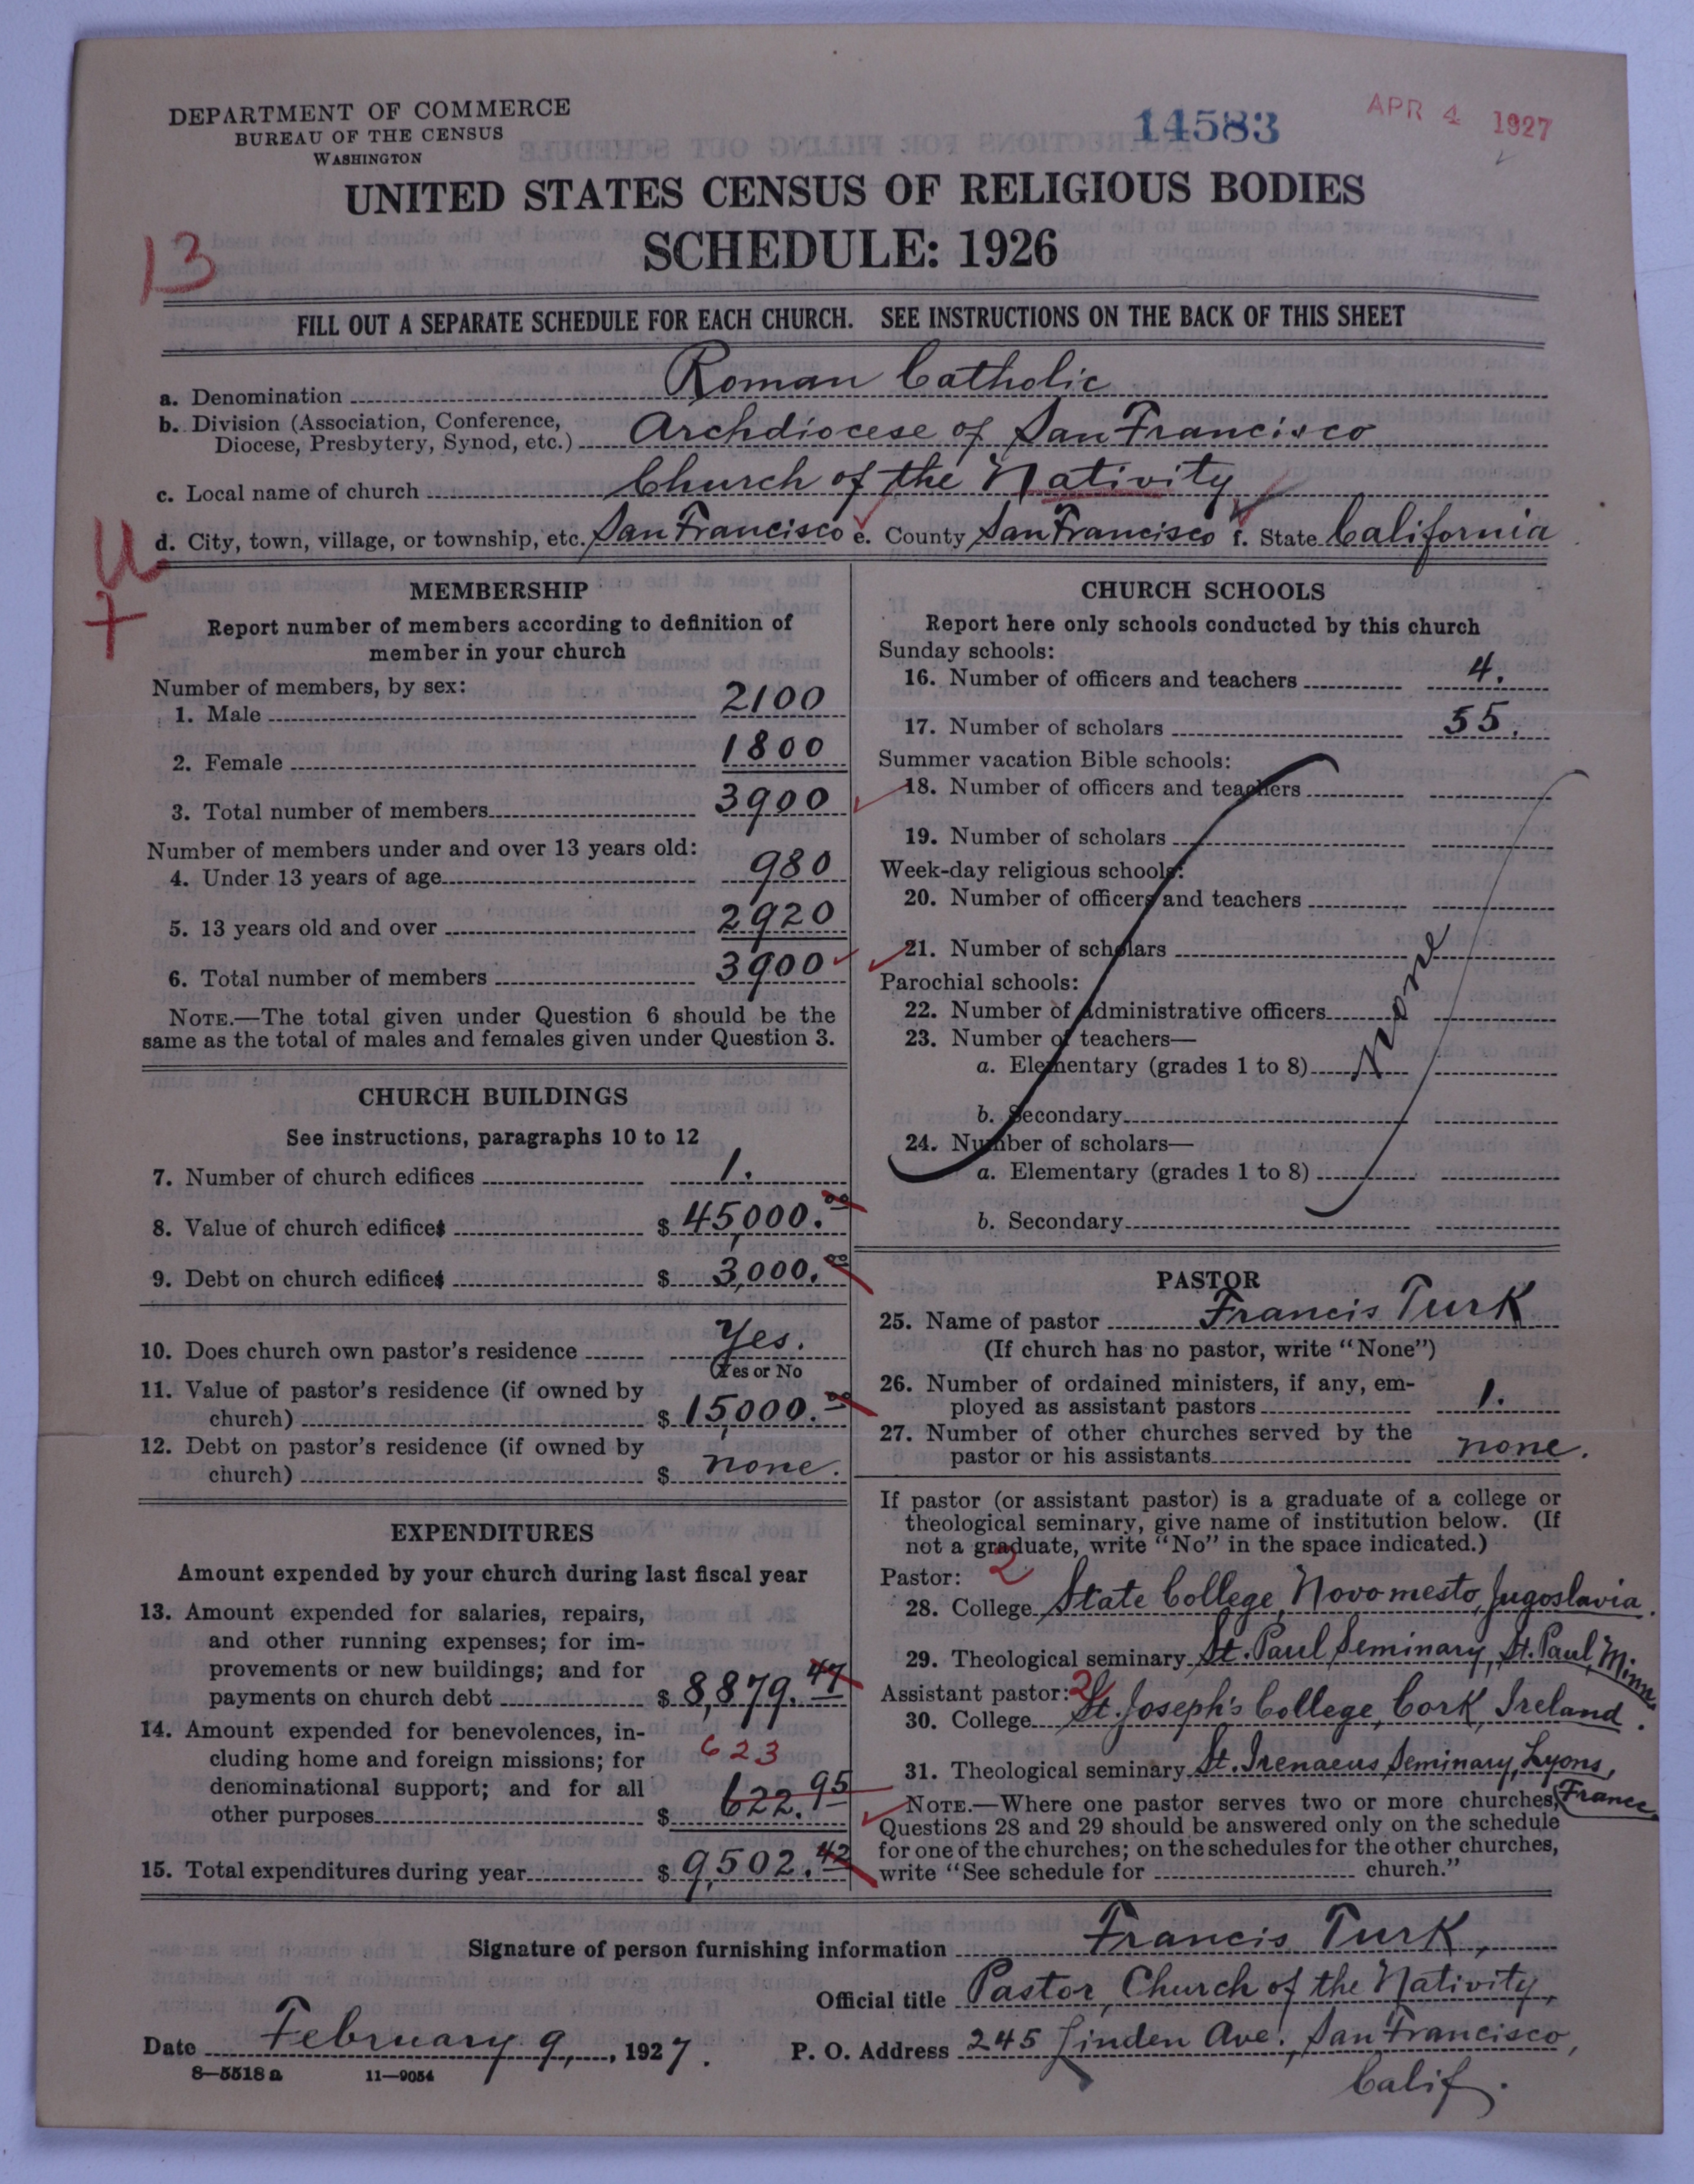 DEPARTMENT OF COMMERCE
BUREAU OF THE CENSUS
WASHINGTON
14583
APR 4 1927
UNITED STATES CENSUS OF RELIGIOUS BODIES
SCHEDULE: 1926
13
FILL OUT A SEPARATE SCHEDULE FOR EACH CHURCH. SEE INSTRUCTIONS ON THE BACK OF THIS SHEET
a. Denomination Roman Catholic
b. Division (Association, Conference,
Diocese, Presbytery, Synod, etc.) Archdiocese of San Francisco
c. Local name of church Church of the Nativity
d. City, town, village, or township, etc. San Francisco e. County San Francisco f. State California
U
+
MEMBERSHIP
Report number of members according to definition of
member in your church
Number of members, by sex:
1. Male 2100
2. Female 1800
3. Total number of members 3900
Number of members under and over 13 years old:
4. Under 13 years of age 980
5. 13 years old and over 2920
6. Total number of members 3900
NOTE.—The total given under Question 6 should be the
same as the total of males and females given under Question 3.
CHURCH BUILDINGS
See instructions, paragraphs 10 to 12
7. Number of church edifices 1.
8. Value of church edifices $ 45,000.00
9. Debt on church edifices $ 3,000.00
10. Does church own pastor's residence Yes.
(Yes or No
11. Value of pastor's residence (if owned by
church) $ 15,000.00
12. Debt on pastor's residence (if owned by
church) $ none.
EXPENDITURES
Amount expended by your church during last fiscal year
13. Amount expended for salaries, repairs,
and other running expenses; for im-
provements or new buildings; and for
payments on church debt $ 8,879.47
14. Amount expended for benevolences, in-
cluding home and foreign missions; for 623
denominational support; and for all
other purposes $ 622.95
15. Total expenditures during year $ 9,502.42
CHURCH SCHOOLS
Report here only schools conducted by this church
Sunday schools:
16. Number of officers and teachers 4.
17. Number of scholars 55.
Summer vacation Bible schools:
18. Number of officers and teachers
19. Number of scholars
Week-day religious schools:
20. Number of officers and teachers
21. Number of scholars
Parochial schools:
22. Number of administrative officers
23. Number of teachers—
a. Elementary (grades 1 to 8) none
b. Secondary
24. Number of scholars—
a. Elementary (grades 1 to 8)
b. Secondary
PASTOR
25. Name of pastor Francis Turk
(If church has no pastor, write "None")
26. Number of ordained ministers, if any, em-
ployed as assistant pastors 1.
27. Number of other churches served by the
pastor or his assistants none.
If pastor (or assistant pastor) is a graduate of a college or
theological seminary, give name of institution below. (If
not a graduate, write "No" in the space indicated.)
Pastor: 2
28. College State College, Novomesto, Jugoslavia.
29. Theological seminary St. Paul Seminary, St. Paul, Minn.
Assistant pastor: 2
30. College St. Joseph's College, Cork, Ireland.
31. Theological seminary St. Irenaeus Seminary, Lyons,
France
NOTE.—Where one pastor serves two or more churches,
Questions 28 and 29 should be answered only on the schedule
for one of the churches; on the schedules for the other churches,
write "See schedule for church."
Signature of person furnishing information Francis Turk,
Official title Pastor, Church of the Nativity,
Date February 9, 1927. P. O. Address 245 Linden Ave., San Francisco,
Calif.
8—5518 a 11—9054